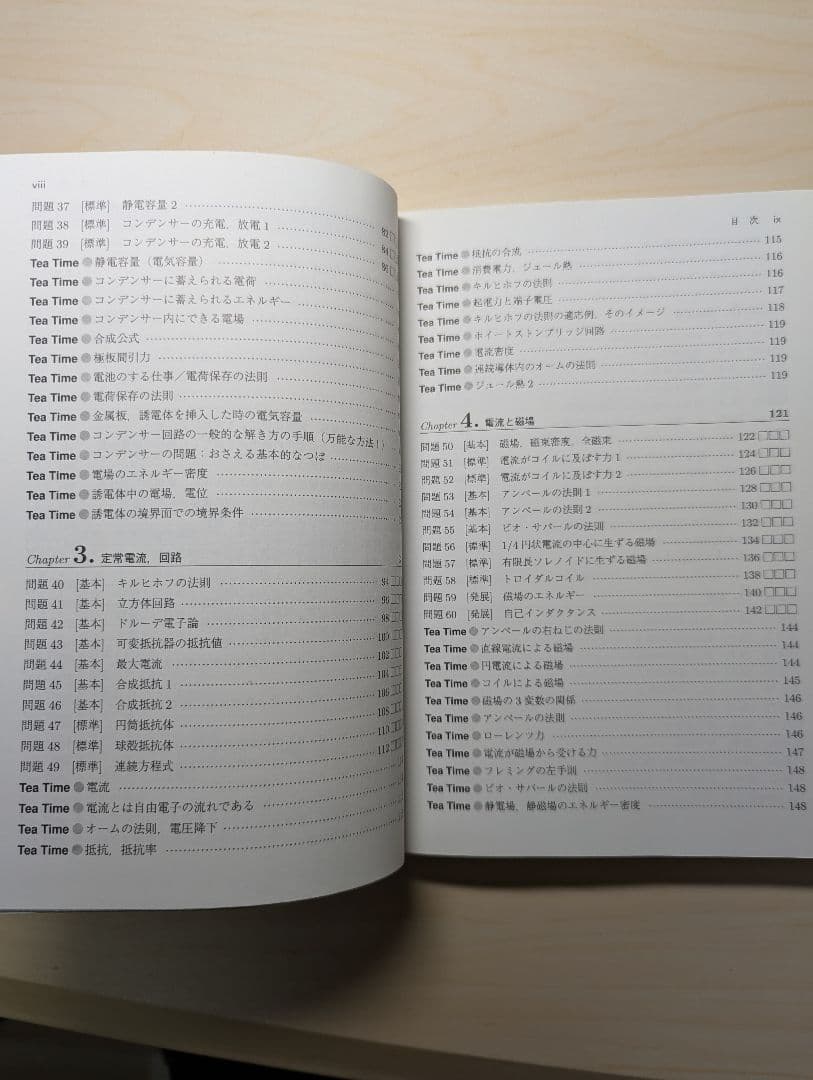 viii
問題 37 [標準] 静電容量 2
問題 38 [標準] コンデンサーの充電,放電 1 82
問題 39 [標準] コンデンサーの充電,放電 2 84
Tea Time ●静電容量(電気容量) 86
Tea Time ●コンデンサーに蓄えられる電荷
Tea Time ●コンデンサーに蓄えられるエネルギー
Tea Time ●コンデンサー内にできる電場
Tea Time ●合成公式
Tea Time ●極板間引力
Tea Time ●電池のする仕事/電荷保存の法則
Tea Time ●電荷保存の法則
Tea Time ●金属板,誘電体を挿入した時の電気容量
Tea Time ●コンデンサー回路の一般的な解き方の手順(万能な方法!)
Tea Time ●コンデンサーの問題:おさえる基本的なつぼ
Tea Time ●電場のエネルギー密度
Tea Time ●誘電体中の電場,電位
Tea Time ●誘電体の境界面での境界条件
Chapter 3. 定常電流,回路
問題 40 [基本] キルヒホフの法則 94
問題 41 [基本] 立方体回路 96
問題 42 [基本] ドルーデ電子論 98
問題 43 [基本] 可変抵抗器の抵抗値 100
問題 44 [基本] 最大電流 102
問題 45 [基本] 合成抵抗 1 104
問題 46 [基本] 合成抵抗 2 106
問題 47 [標準] 円筒抵抗体 108
問題 48 [標準] 球殻抵抗体 110
問題 49 [標準] 連続方程式 112
Tea Time ●電流
Tea Time ●電流とは自由電子の流れである
Tea Time ●オームの法則,電圧降下
Tea Time ●抵抗,抵抗率
目 次 ix
Tea Time ●抵抗の合成 115
Tea Time ●消費電力,ジュール熱 116
Tea Time ●キルヒホフの法則 116
Tea Time ●起電力と端子電圧 117
Tea Time ●キルヒホフの法則の適応例,そのイメージ 118
Tea Time ●ホイートストンブリッジ回路 119
Tea Time ●電流密度 119
Tea Time ●連続導体内のオームの法則 119
Tea Time ●ジュール熱 2 119
Chapter 4. 電流と磁場 121
問題 50 [基本] 磁場,磁束密度,全磁束 122 □□□
問題 51 [標準] 電流がコイルに及ぼす力 1 124 □□□
問題 52 [標準] 電流がコイルに及ぼす力 2 126 □□□
問題 53 [基本] アンペールの法則 1 128 □□□
問題 54 [基本] アンペールの法則 2 130 □□□
問題 55 [基本] ビオ・サバールの法則 132 □□□
問題 56 [標準] 1/4 円状電流の中心に生ずる磁場 134 □□□
問題 57 [標準] 有限長ソレノイドに生ずる磁場 136 □□□
問題 58 [標準] トロイダルコイル 138 □□□
問題 59 [発展] 磁場のエネルギー 140 □□□
問題 60 [発展] 自己インダクタンス 142 □□□
Tea Time ●アンペールの右ねじの法則 144
Tea Time ●直線電流による磁場 144
Tea Time ●円電流による磁場 144
Tea Time ●コイルによる磁場 145
Tea Time ●磁場の 3 変数の関係 146
Tea Time ●アンペールの法則 146
Tea Time ●ローレンツ力 146
Tea Time ●電流が磁場から受ける力 147
Tea Time ●フレミングの左手則 148
Tea Time ●ビオ・サバールの法則 148
Tea Time ●静電場,静磁場のエネルギー密度 148